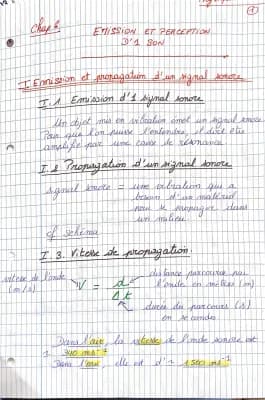 1
Chap 6
EMISSION ET PERCEPTION
D'1 SON
I. Emission et propagation d'un signal sonore
I.1 Emission d'1 signal sonore
Un objet mis en vibration émet un signal sonore
Pour que l'on puisse l'entendre, il doit être
amplifié par une caisse de résonance.
I.2 Propagation d'un signal sonore
signal sonore = une vibration qui a
besoin d'un matériel
pour se propager dans
un milieu.
cf Schéma
I.3. Vitesse de propagation.
vitesse de l'onde (m/s) V = d / Δt
distance parcourue par
l'onde en mètres (m)
durée du parcours (s)
en secondes
Dans l'air, la vitesse de l'onde sonore est
340 ms⁻¹
Dans l'eau, elle est d'≈ 1500 ms⁻¹